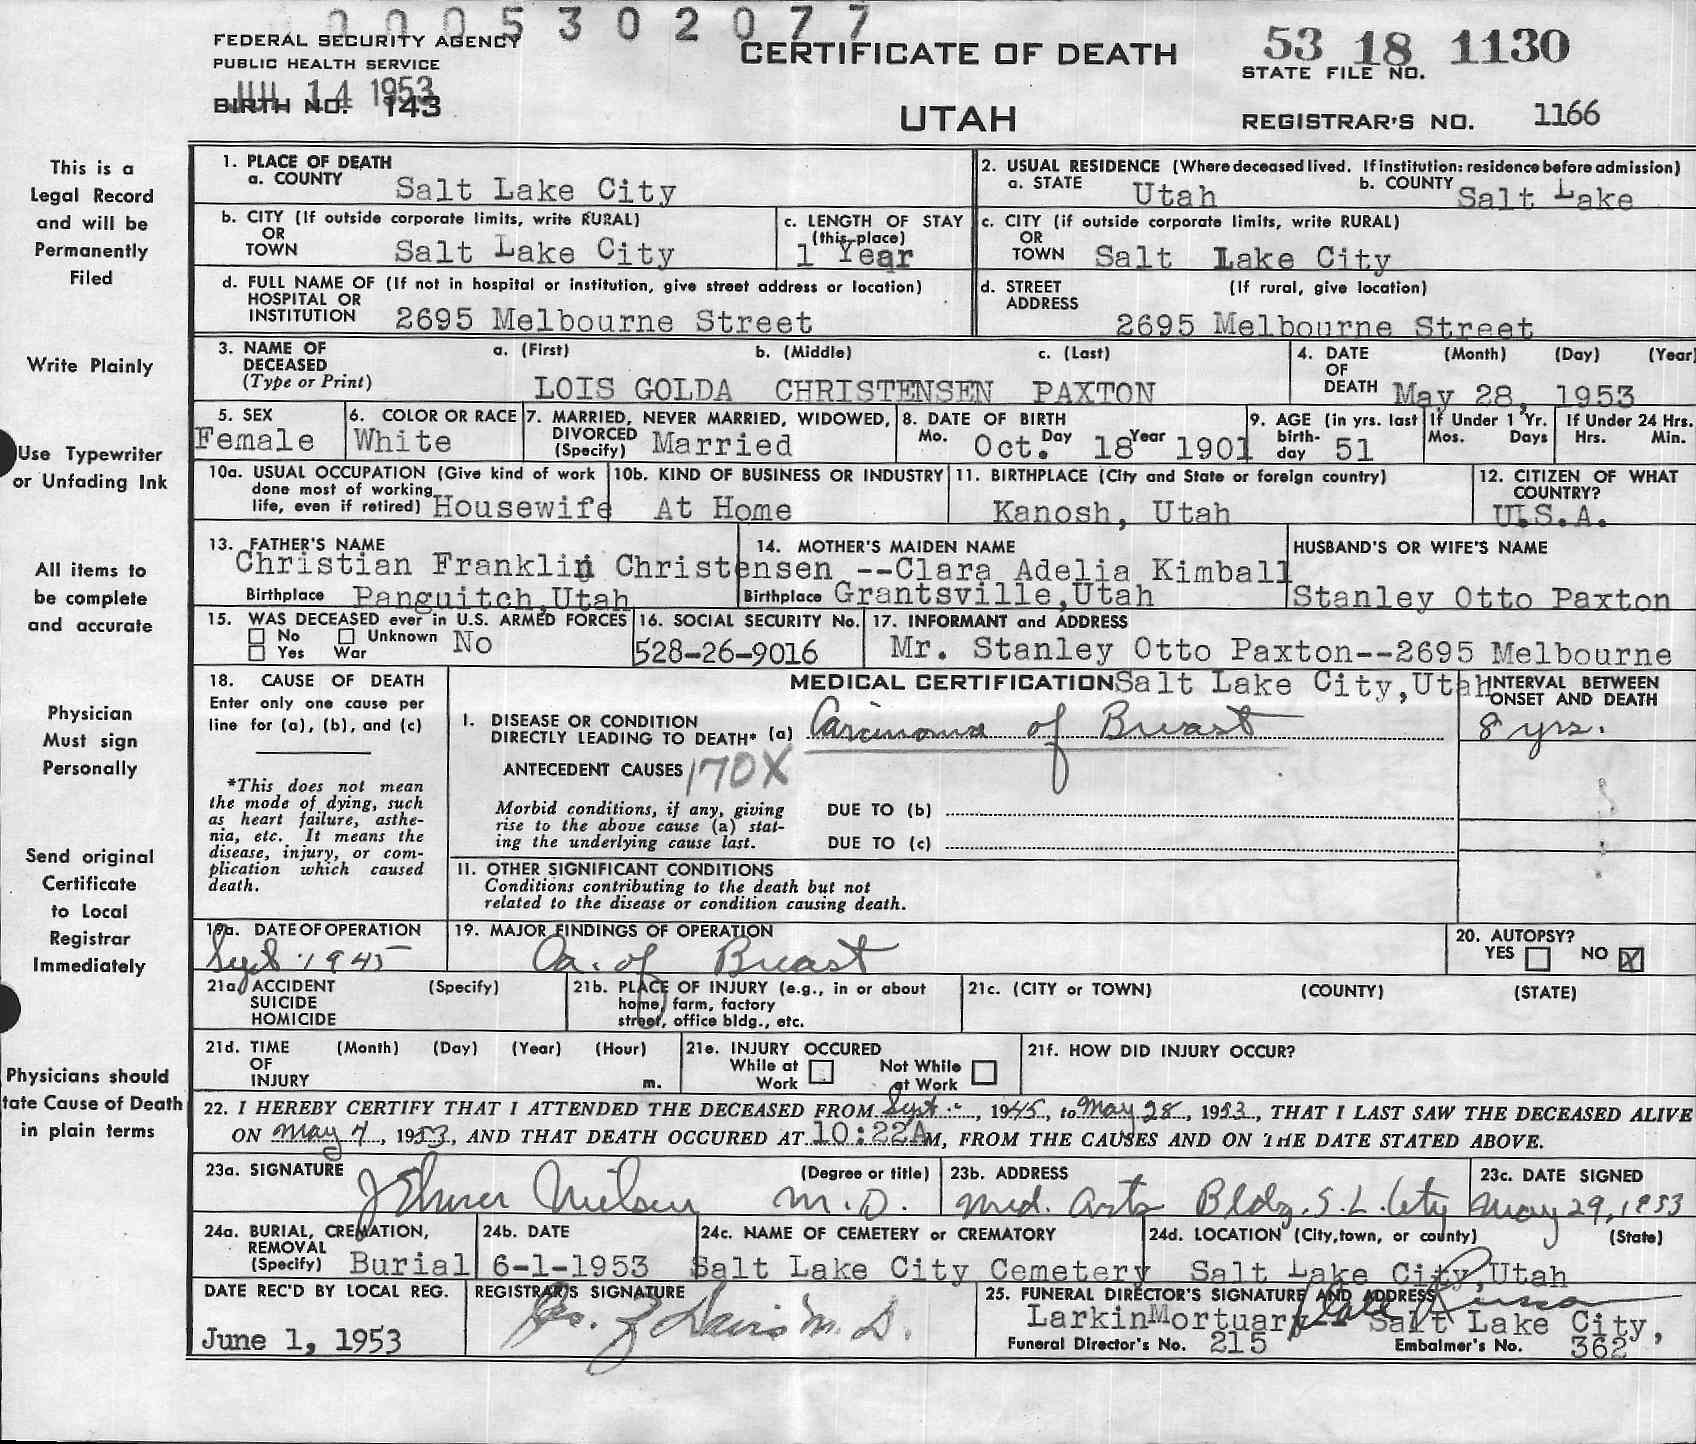 0005302077
FEDERAL SECURITY AGENCY
PUBLIC HEALTH SERVICE
JUL 14 1953
BIRTH NO. 143
CERTIFICATE OF DEATH
UTAH
53 18 1130
STATE FILE NO.
REGISTRAR'S NO. 1166
This is a
Legal Record
and will be
Permanently
Filed
Write Plainly
Use Typewriter
or Unfading Ink
All items to
be complete
and accurate
Physician
Must sign
Personally
Send original
Certificate
to Local
Registrar
Immediately
Physicians should
tate Cause of Death
in plain terms
1. PLACE OF DEATH
a. COUNTY Salt Lake City
2. USUAL RESIDENCE (Where deceased lived. If institution: residence before admission)
a. STATE Utah b. COUNTY Salt Lake
b. CITY (If outside corporate limits, write RURAL)
OR
TOWN Salt Lake City
c. LENGTH OF STAY
(this place)
1 Year
c. CITY (if outside corporate limits, write RURAL)
OR
TOWN Salt Lake City
d. FULL NAME OF (If not in hospital or institution, give street address or location)
HOSPITAL OR
INSTITUTION 2695 Melbourne Street
d. STREET (If rural, give location)
ADDRESS
2695 Melbourne Street
3. NAME OF a. (First) b. (Middle) c. (Last)
DECEASED
(Type or Print) LOIS GOLDA CHRISTENSEN PAXTON
4. DATE (Month) (Day) (Year
OF
DEATH May 28, 1953
5. SEX
Female
6. COLOR OR RACE
White
7. MARRIED, NEVER MARRIED, WIDOWED,
DIVORCED
(Specify) Married
8. DATE OF BIRTH
Mo. Day Year
Oct. 18 1901
9. AGE (in yrs. last
birth-
day 51
If Under 1 Yr.
Mos. Days
If Under 24 Hrs.
Hrs. Min.
10a. USUAL OCCUPATION (Give kind of work
done most of working
life, even if retired) Housewife
10b. KIND OF BUSINESS OR INDUSTRY
At Home
11. BIRTHPLACE (City and State or foreign country)
Kanosh, Utah
12. CITIZEN OF WHAT
COUNTRY?
U.S.A.
13. FATHER'S NAME
Christian Franklin Christensen
Birthplace Panguitch,Utah
14. MOTHER'S MAIDEN NAME
--Clara Adelia Kimball
Birthplace Grantsville,Utah
HUSBAND'S OR WIFE'S NAME
Stanley Otto Paxton
15. WAS DECEASED ever in U.S. ARMED FORCES
No Unknown No
Yes War
16. SOCIAL SECURITY No.
528-26-9016
17. INFORMANT and ADDRESS
Mr. Stanley Otto Paxton--2695 Melbourne
18. CAUSE OF DEATH
Enter only one cause per
line for (a), (b), and (c)
*This does not mean
the mode of dying, such
as heart failure, asthe-
nia, etc. It means the
disease, injury, or com-
plication which caused
death.
MEDICAL CERTIFICATION Salt Lake City,Utah
INTERVAL BETWEEN
ONSET AND DEATH
I. DISEASE OR CONDITION
DIRECTLY LEADING TO DEATH* (a) Carcinoma of Breast 8 yrs.
ANTECEDENT CAUSES 170X
Morbid conditions, if any, giving
rise to the above cause (a) stat-
ing the underlying cause last.
DUE TO (b)
DUE TO (c)
II. OTHER SIGNIFICANT CONDITIONS
Conditions contributing to the death but not
related to the disease or condition causing death.
19a. DATE OF OPERATION
Sept. 1945
19. MAJOR FINDINGS OF OPERATION
Ca. of Breast
20. AUTOPSY?
YES NO X
21a. ACCIDENT (Specify)
SUICIDE
HOMICIDE
21b. PLACE OF INJURY (e.g., in or about
home, farm, factory
street, office bldg., etc.
21c. (CITY or TOWN) (COUNTY) (STATE)
21d. TIME (Month) (Day) (Year) (Hour)
OF
INJURY m.
21e. INJURY OCCURED
While at Not While
Work at Work
21f. HOW DID INJURY OCCUR?
22. I HEREBY CERTIFY THAT I ATTENDED THE DECEASED FROM Sept., 1945, to May 28, 1953, THAT I LAST SAW THE DECEASED ALIVE
ON May 7, 1953, AND THAT DEATH OCCURED AT 10:22AM, FROM THE CAUSES AND ON THE DATE STATED ABOVE.
23a. SIGNATURE (Degree or title)
J Elmer Nielsen M.D.
23b. ADDRESS
Med. Arts Bldg. S.L. City
23c. DATE SIGNED
May 29, 1953
24a. BURIAL, CREMATION,
REMOVAL
(Specify) Burial
24b. DATE
6-1-1953
24c. NAME OF CEMETERY or CREMATORY
Salt Lake City Cemetery
24d. LOCATION (City,town, or county) (State)
Salt Lake City,Utah
DATE REC'D BY LOCAL REG.
June 1, 1953
REGISTRAR'S SIGNATURE
M.D.
25. FUNERAL DIRECTOR'S SIGNATURE AND ADDRESS
Larkin Mortuary-- Salt Lake City,
Funeral Director's No. 215 Embalmer's No. 362